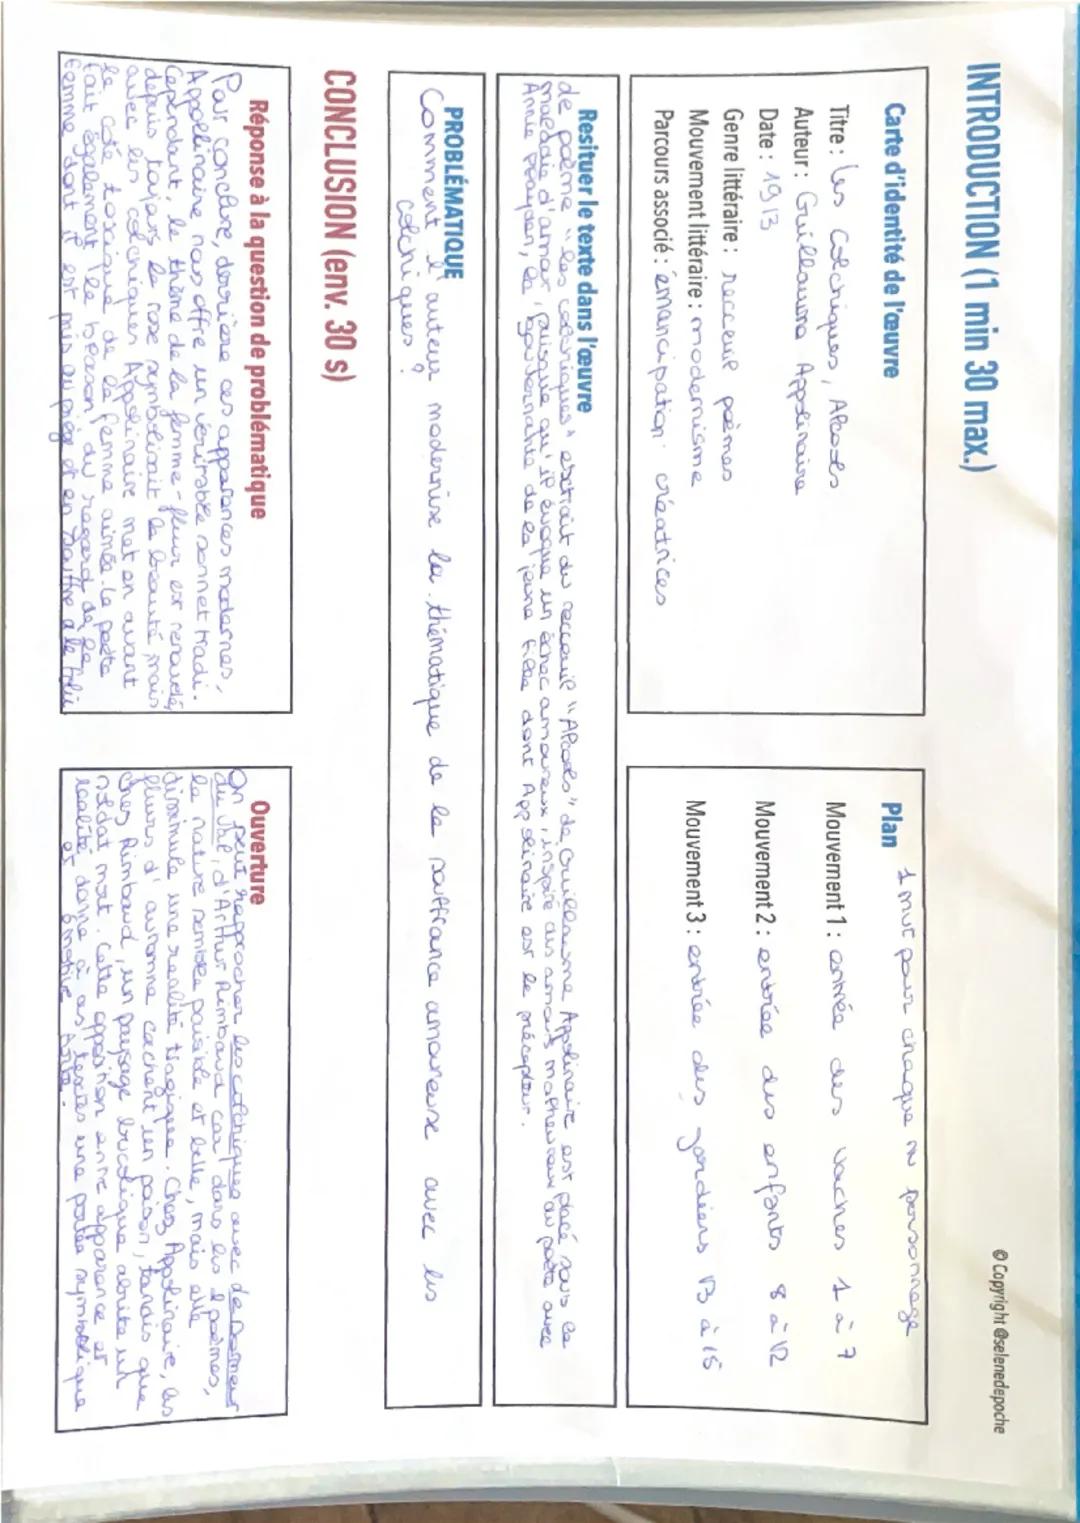 © Copyright @selenedepoche
INTRODUCTION (1 min 30 max.)
Carte d'identité de l'œuvre
Titre : les colchiques, Alcools
Auteur : Guillaume Appolinaire
Date : 1913
Genre littéraire : recceuil poèmes
Mouvement littéraire : modernisme
Parcours associé : émancipation créatrices
Plan 1 mvt pour chaque personnage
Mouvement 1 : entrée des vaches 1 à 7
Mouvement 2 : entrée des enfants 8 à 12
Mouvement 3 : entrée des gardiens 13 à 15
Resituer le texte dans l'œuvre
de poème "les colchiques" extrait du recceuil "Alcools" de Guillaume Appolinaire est placé sous la
maladie d'amour, puisque qu'il évoque un échec amoureux, inspiré des amours malheureux du poète avec
Annie Playden, la gouvernante de la jeune fille dont Appolinaire est le précepteur.
PROBLÉMATIQUE
Comment l'auteur modernise la thématique de la souffrance amoureuse avec les
colchiques ?
CONCLUSION (env. 30 s)
Réponse à la question de problématique
Pour conclure, derrière ces apparences modernes,
Appollinaire nous offre un véritable sonnet tradi.
Cependant, le thème de la femme-fleur est renouvelé,
depuis toujours la rose symbolisait la beauté, mais
avec les colchiques Appolinaire met en avant
le côté toxique de la femme aimée. Le poète
fait également le blason du regard de la
femme dont il est pris au piège et en souffre à la folie
Ouverture
On peut rapprocher les colchiques avec le Dormeur
du Val, d'Arthur Rimbaud car dans les 2 poèmes,
la nature semble paisible et belle, mais elle
dissimule une réalité tragique. Chez Appolinaire, les
fleurs d'automne cachent un poison, tandis que
chez Rimbaud, un paysage bucolique abrite un
soldat mort. Cette opposition entre apparence et
réalité donne à ces textes une portée symbolique
et émotive forte.